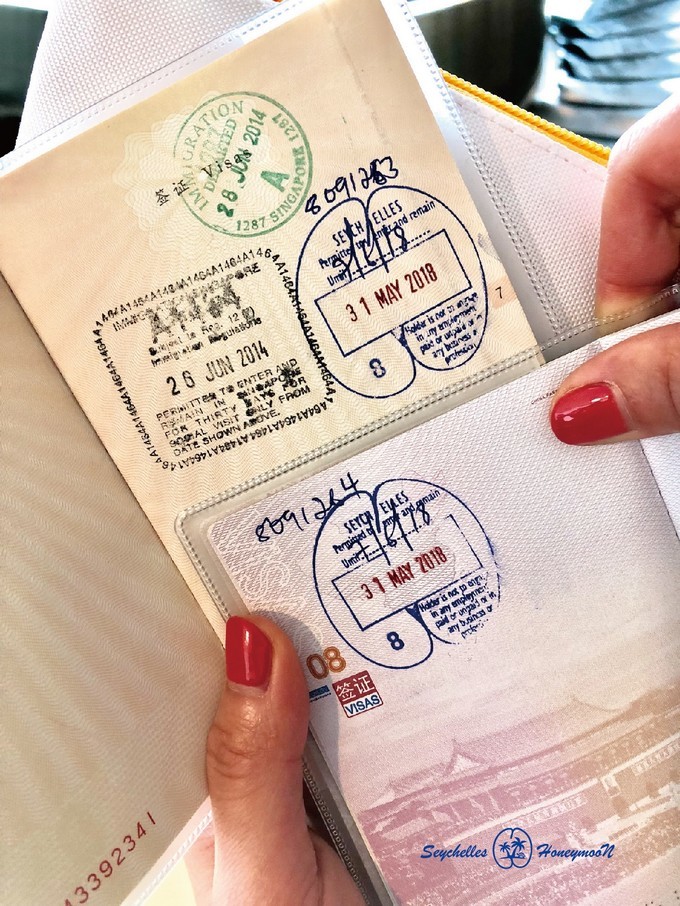 IMMIGRATION
DEPARTED
28 JUN 2014
A
1287 SINGAPORE 1287
签证 Visas
8091283
SEYCHELLES
Permitted to enter and remain
Until
31 MAY 2018
8
Holder is not to engage
in any employment
paid or unpaid or in
any business or
profession
7
A1464A1464A1464A1464A146
Immigration Regulations
26 JUN 2014
PERMITTED TO ENTER AND
REMAIN IN SINGAPORE
FOR THIRTY DAYS FOR
SOCIAL VISIT ONLY FROM
DATE SHOWN ABOVE.
8091284
SEYCHELLES
Permitted to enter and remain
Until
31 MAY 2018
8
Holder is not to engage
in any employment
paid or unpaid or in
any business or
08
签证
VISAS
43392341
Seychelles HoneymooN